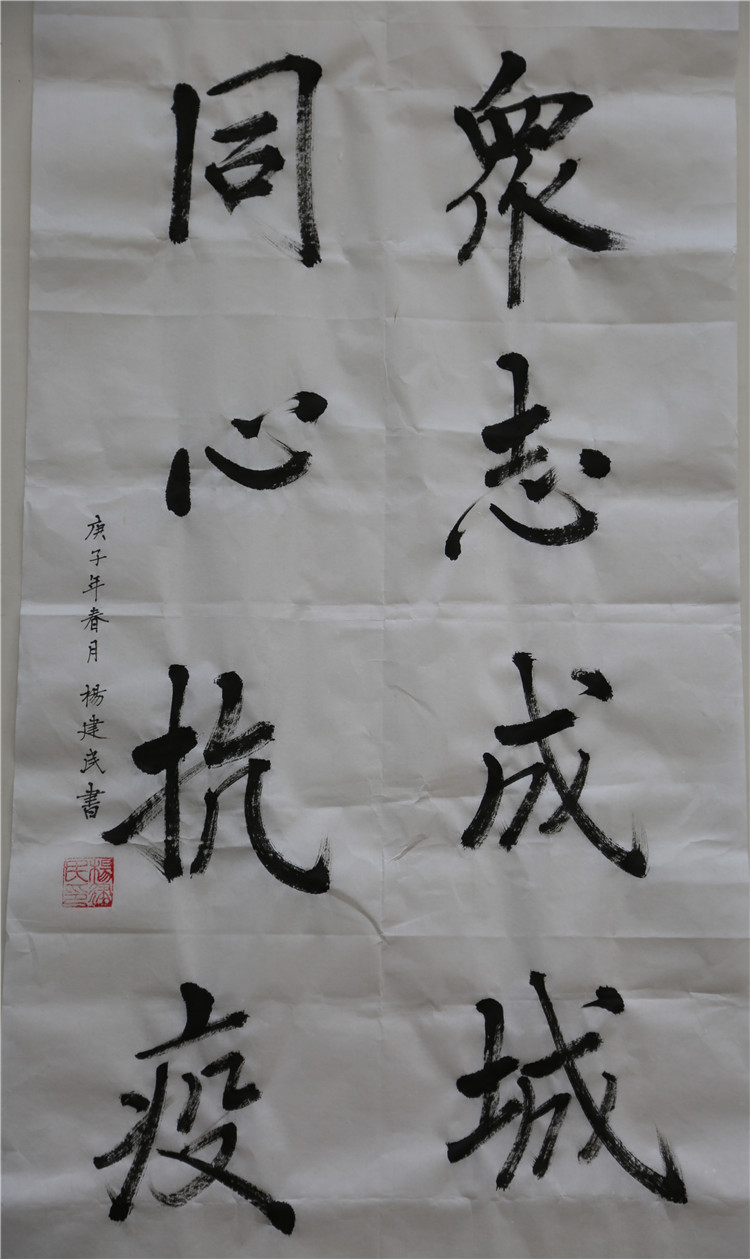 眾志成城
同心抗疫
庚子年春月 楊建民書
楊建民印